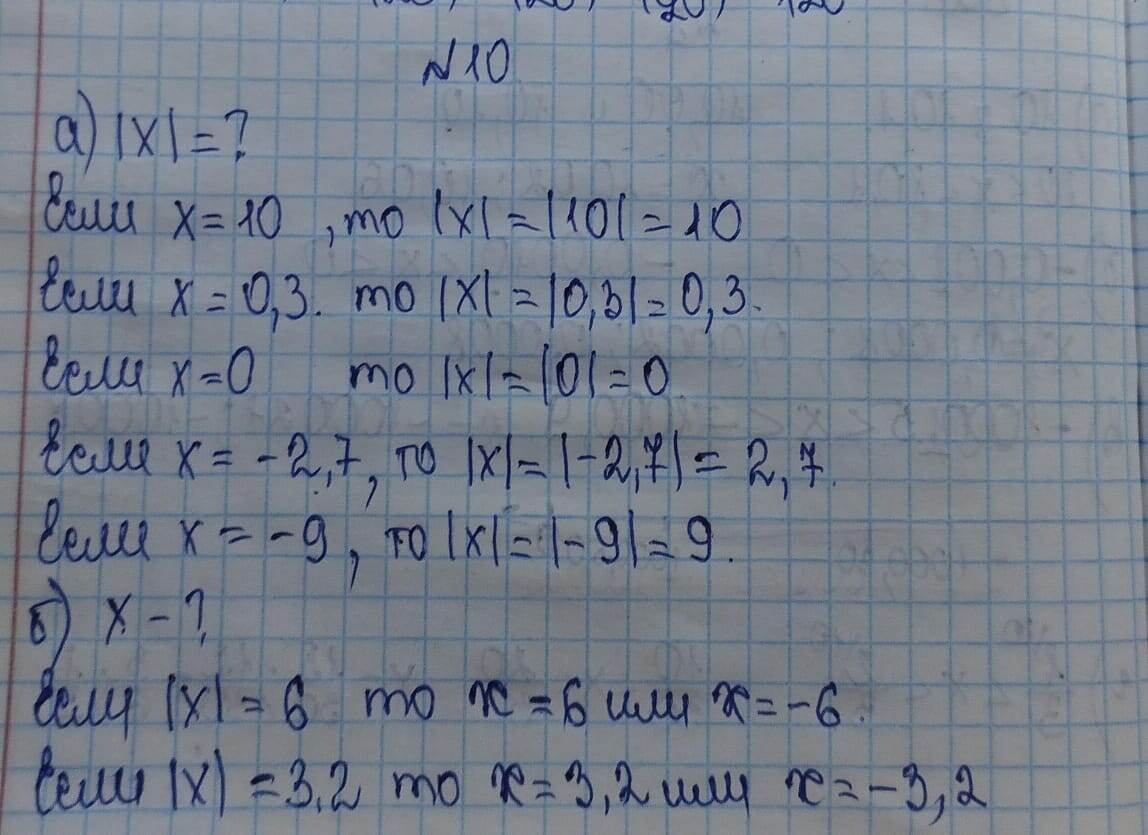 №10
а) |x| = ?
Если x = 10 , то |x| = |10| = 10
Если x = 0,3. то |x| = |0,3| = 0,3.
Если x = 0 то |x| = |0| = 0
Если x = -2,7, то |x| = |-2,7| = 2,7.
Если x = -9, то |x| = |-9| = 9.
б) x - ?
Если |x| = 6 то x = 6 или x = -6.
Если |x| = 3,2 то x = 3,2 или x = -3,2